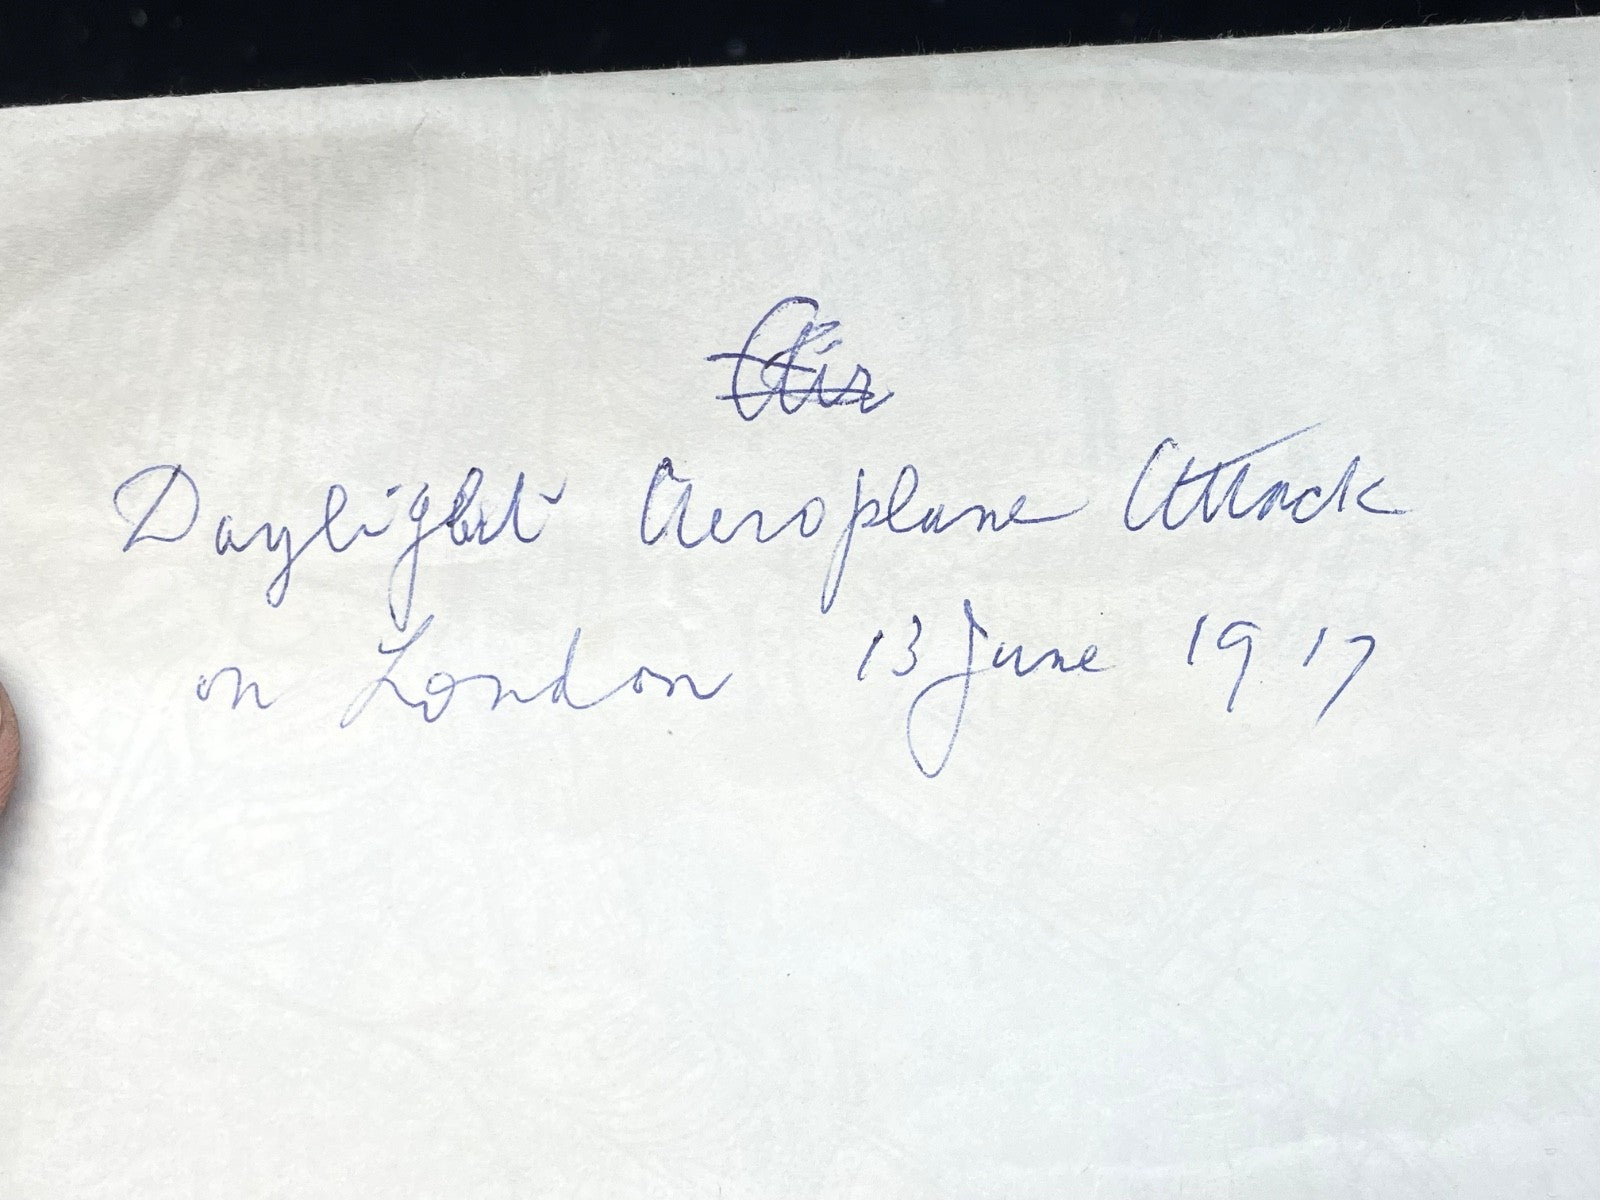 Air
Daylight Aeroplane Attack
on London 13 June 1917